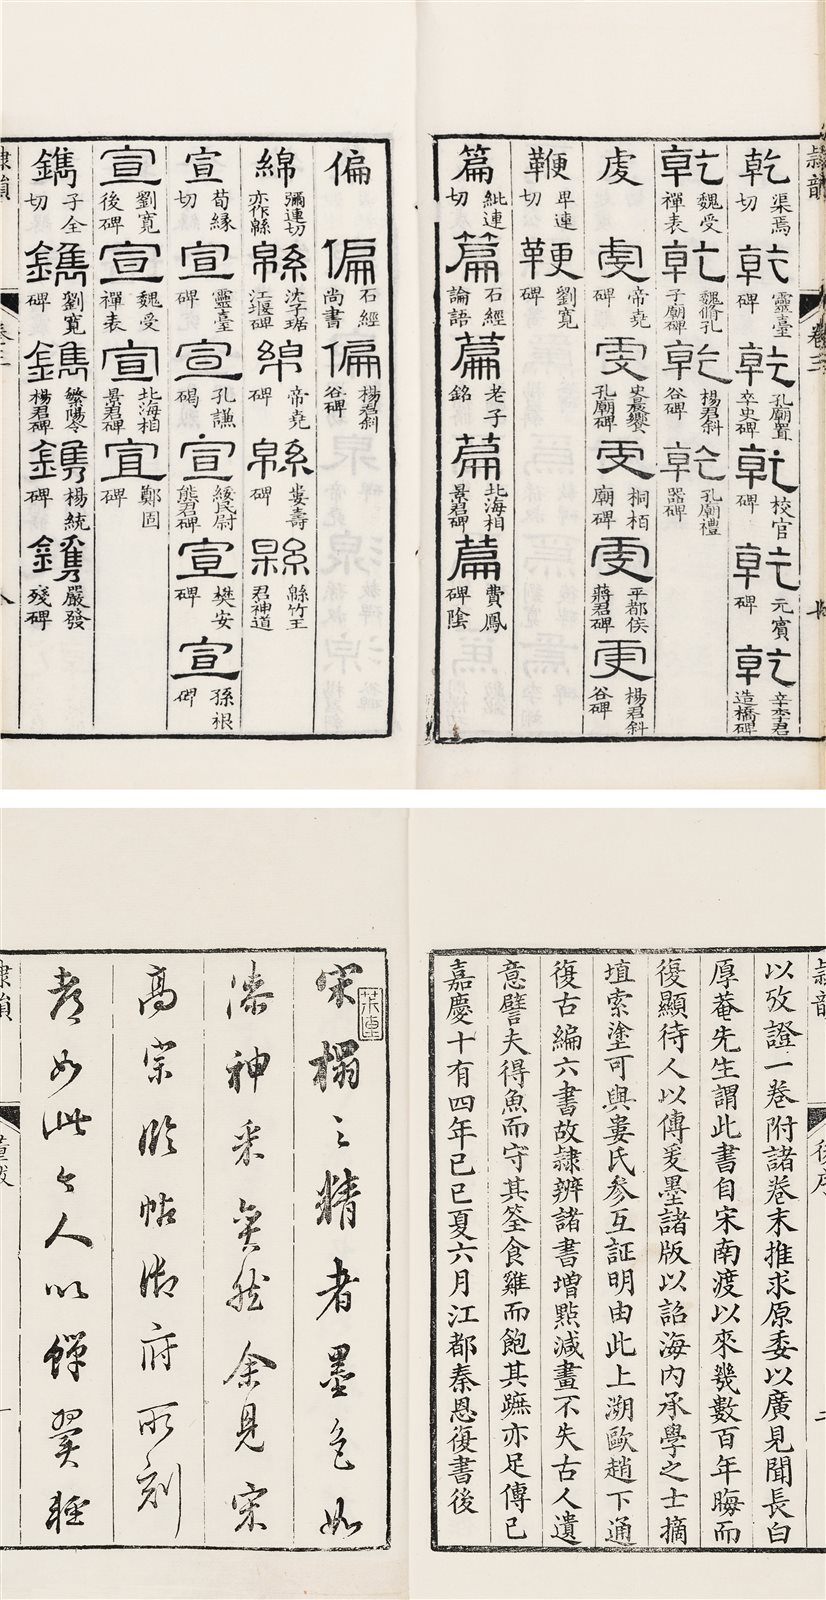 隸韻 卷三 七
乾 渠焉切 乾 靈臺碑 乾 孔廟置卒史碑 乾 校官碑 乾 元賓碑 乾 辛李君造橋碑
乾 魏受禪表 乾 魏脩孔子廟碑 乾 楊君斜谷碑 乾 孔廟禮器碑
虔 虔 帝堯碑 虔 史晨饗孔廟碑 虔 桐柏廟碑 虔 平都侯蔣君碑 虔 楊君斜谷碑
鞭 卑連切 鞭 劉寬碑
篇 紕連切 篇 石經論語 篇 老子銘 篇 北海相景君碑 篇 費鳳碑陰
偏 偏 石經尚書 偏 楊君斜谷碑
綿 彌連切亦作緜 緜 沈子琚江堰碑 綿 帝堯碑 緜 婁壽碑 緜 緜竹王君神道
宣 荀緣切 宣 靈臺碑 宣 孔謙碣 宣 綏民尉熊君碑 宣 樊安碑 宣 孫根碑
宣 劉寬後碑 宣 魏受禪表 宣 北海相景君碑 宣 鄭固碑
鐫 子全切 鐫 劉寬碑 鐫 繁陽令楊君碑 鐫 楊統碑 鐫 嚴發殘碑
隸韻 卷三 八
隸韻 後序 二
以攷證一卷附諸卷末推求原委以廣見聞長白
厚菴先生謂此書自宋南渡以來幾數百年晦而
復顯待人以傳爰墨諸版以詒海內承學之士摘
埴索塗可與婁氏參互証明由此上溯歐趙下通
復古編六書故隸辨諸書增點減畫不失古人遺
意譬夫得魚而守其筌食雞而飽其蹠亦足傳已
嘉慶十有四年己巳夏六月江都秦恩復書後
宋搨之精者墨色如
漆神采奐然余見宋
高宗臨帖御府所刻
都如此今人以蟬翼輕
隸韻 董跋 一